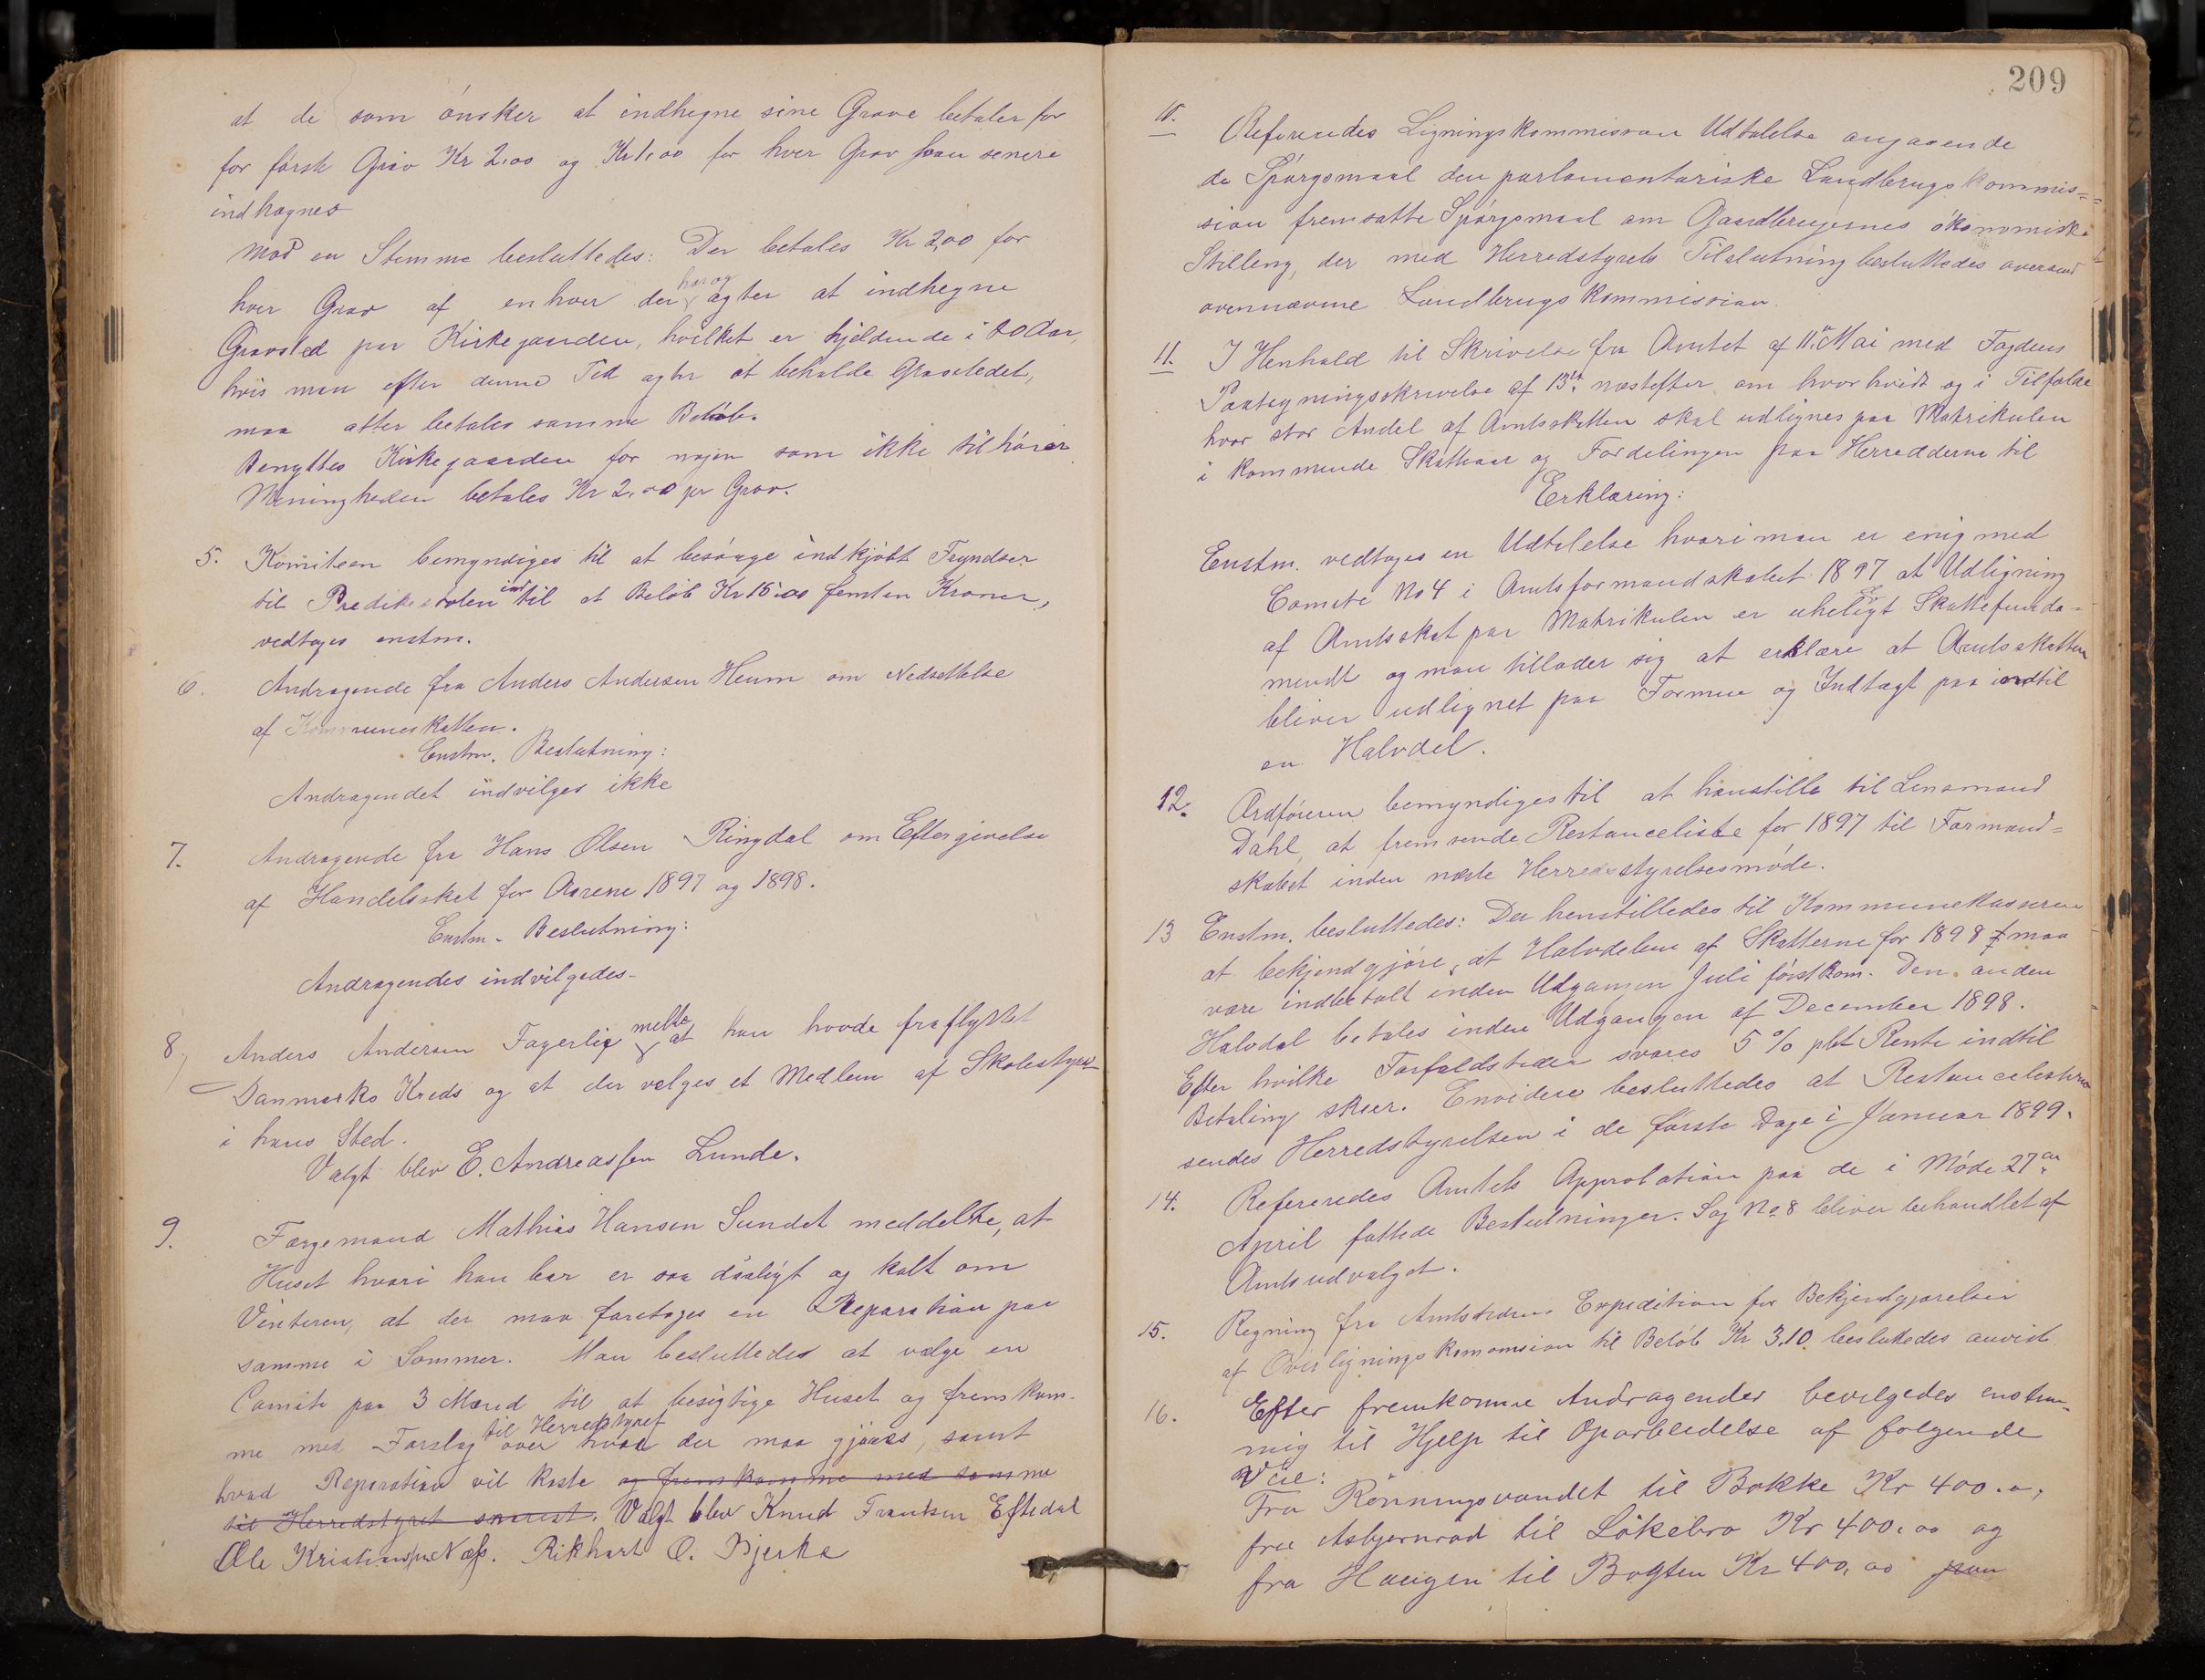 at de som ónsker at indhegne sine Grave betaler for
for förste Grav Kr 2.00 og Kr 1.00 for hver Grav som senere
indhegnes
Mod en Stemme besluttedes: Der betales Kr 2,00 for
hver Grav af enhver der agter at indhegne
Gravsted paa Kirkegaarden, hvilket er gjeldende i 20 Aar,
hvis man efter denne Tid agter at beholde Gravstedet,
maa atter betales samme Belöb.
Benyttes Kirkegaarden for nogen som ikke tilhörer
Menigheden betales Kr 2.00 pr Grav.
5. Komiteen bemyndiges til at besörge indkjöbt Fryndser
til Predikestolen indtil et Belöb Kr 15.00 femten Kroner,
vedtoges enstm.
6. Andragende fra Anders Andersen Heum om Nedsettelse
af Kommuneskatten.
Enstm. Beslutning:
Andragendet indvilges ikke
7. Andragende fra Hans Olsen Ringdal om Eftergivelse
af Handelsskat for Aarene 1897 og 1898.
Enstm. Beslutning:
Andragendes indvilgedes.
8, Anders Andersen Fagerlie melte at han havde fraflyttet
Danmarks Kreds og at der velges et Medlem af Skolestyret
i hans Sted.
Valgt blev E. Andreassen Lunde.
9. Færgemand Mathias Hansen Sundet meddelte, at
Huset hvori han bor er saa daaligt og kalt om
Vinteren, at der maa foretages en Reparation paa
samme i Sommer. Man besluttedes at vælge en
Comite paa 3 Mænd til at besigtige Huset og fremkom-
me med Forslag til Herredstyret over hvad der maa gjöres, samt
hvad Reparation vil koste og fremkomme med samme
til Herredstyret snarest. Valgt blev Knud Frantsen Eftedal
Ole Kristiansen Næss. Rikhart O. Bjerke
209
10. Refereredes Ligningskommission Udtalelse angaaende
de Spörgsmaal den parlamentariske Landbrugskommis=
sion fremsatte Spörgsmaal om Gaardbrugernes ökonomiske
Stilling, der med Herredstyrets Tilslutning besluttedes oversend
ovennævnte Landbrugskommission.
11. I Henhold til Skrivelse fra Amtet af 11te Mai med Fogdens
Paategningsskrivelse af 13de næstefter om hvorhvidt og i Tilfælde
hvor stor Andel af Amtsskatten skal udlignes paa Matrikulen
i kommende Skatteaar og Fordelingen paa Herrederne til
Erklæring:
Enstm. vedtoges en Udtalelse hvori man er enig med
Comite No 4 i Amtsformandskabet 1897 at Udligning
af Amtsskat paa Matrikulen er uheligt Skattefunda-
ment og man tillader sig at erklære at Amtsskatten
bliver udlignet paa Formue og Indtægt paa indtil
en Halvdel.
12. Ordföreren bemyndiges til at henstille til Lensmand
Dahl, at fremsende Restanceliste for 1897 til Formand=
skabet inden næste Herredsstyrelsesmöde.
13 Enstm. besluttedes: Der henstilledes til Kommunekasseren
at bekjendgjöre, at Halvdelen af Skatterne for 1898 maa
være indbetalt inden Udgangen Juli förstkom. Den anden
Halvdel betales inden Udgangen af December 1898.
Efter hvilke Forfaldstider svares 5 % pct Rente indtil
Betaling skeer. Envidere besluttedes at Restancelisterne
sendes Herredstyrelsen i de förste Dage i Januar 1899.
14. Refereredes Amtets Approbation paa de i Möde 27de
April fattede Beslutninger. Sag No 8 bliver behandlet af
Amtsudvalget.
15. Regning fra Amtstidens Expedition for Bekjendgjörelser
af Overligningskommision til Belöb Kr 3.10. besluttedes anvist
16. Efter fremkomne Andragender bevilgedes enstem-
mig til Hjelp til Oparbeidelse af fölgende
Veie:
Fra Rönningsvandet til Bakke Kr 400.00,
fra Asbjörnröd til Lökebro Kr 400.00 og
fra Haugen til Bogten Kr 400.00